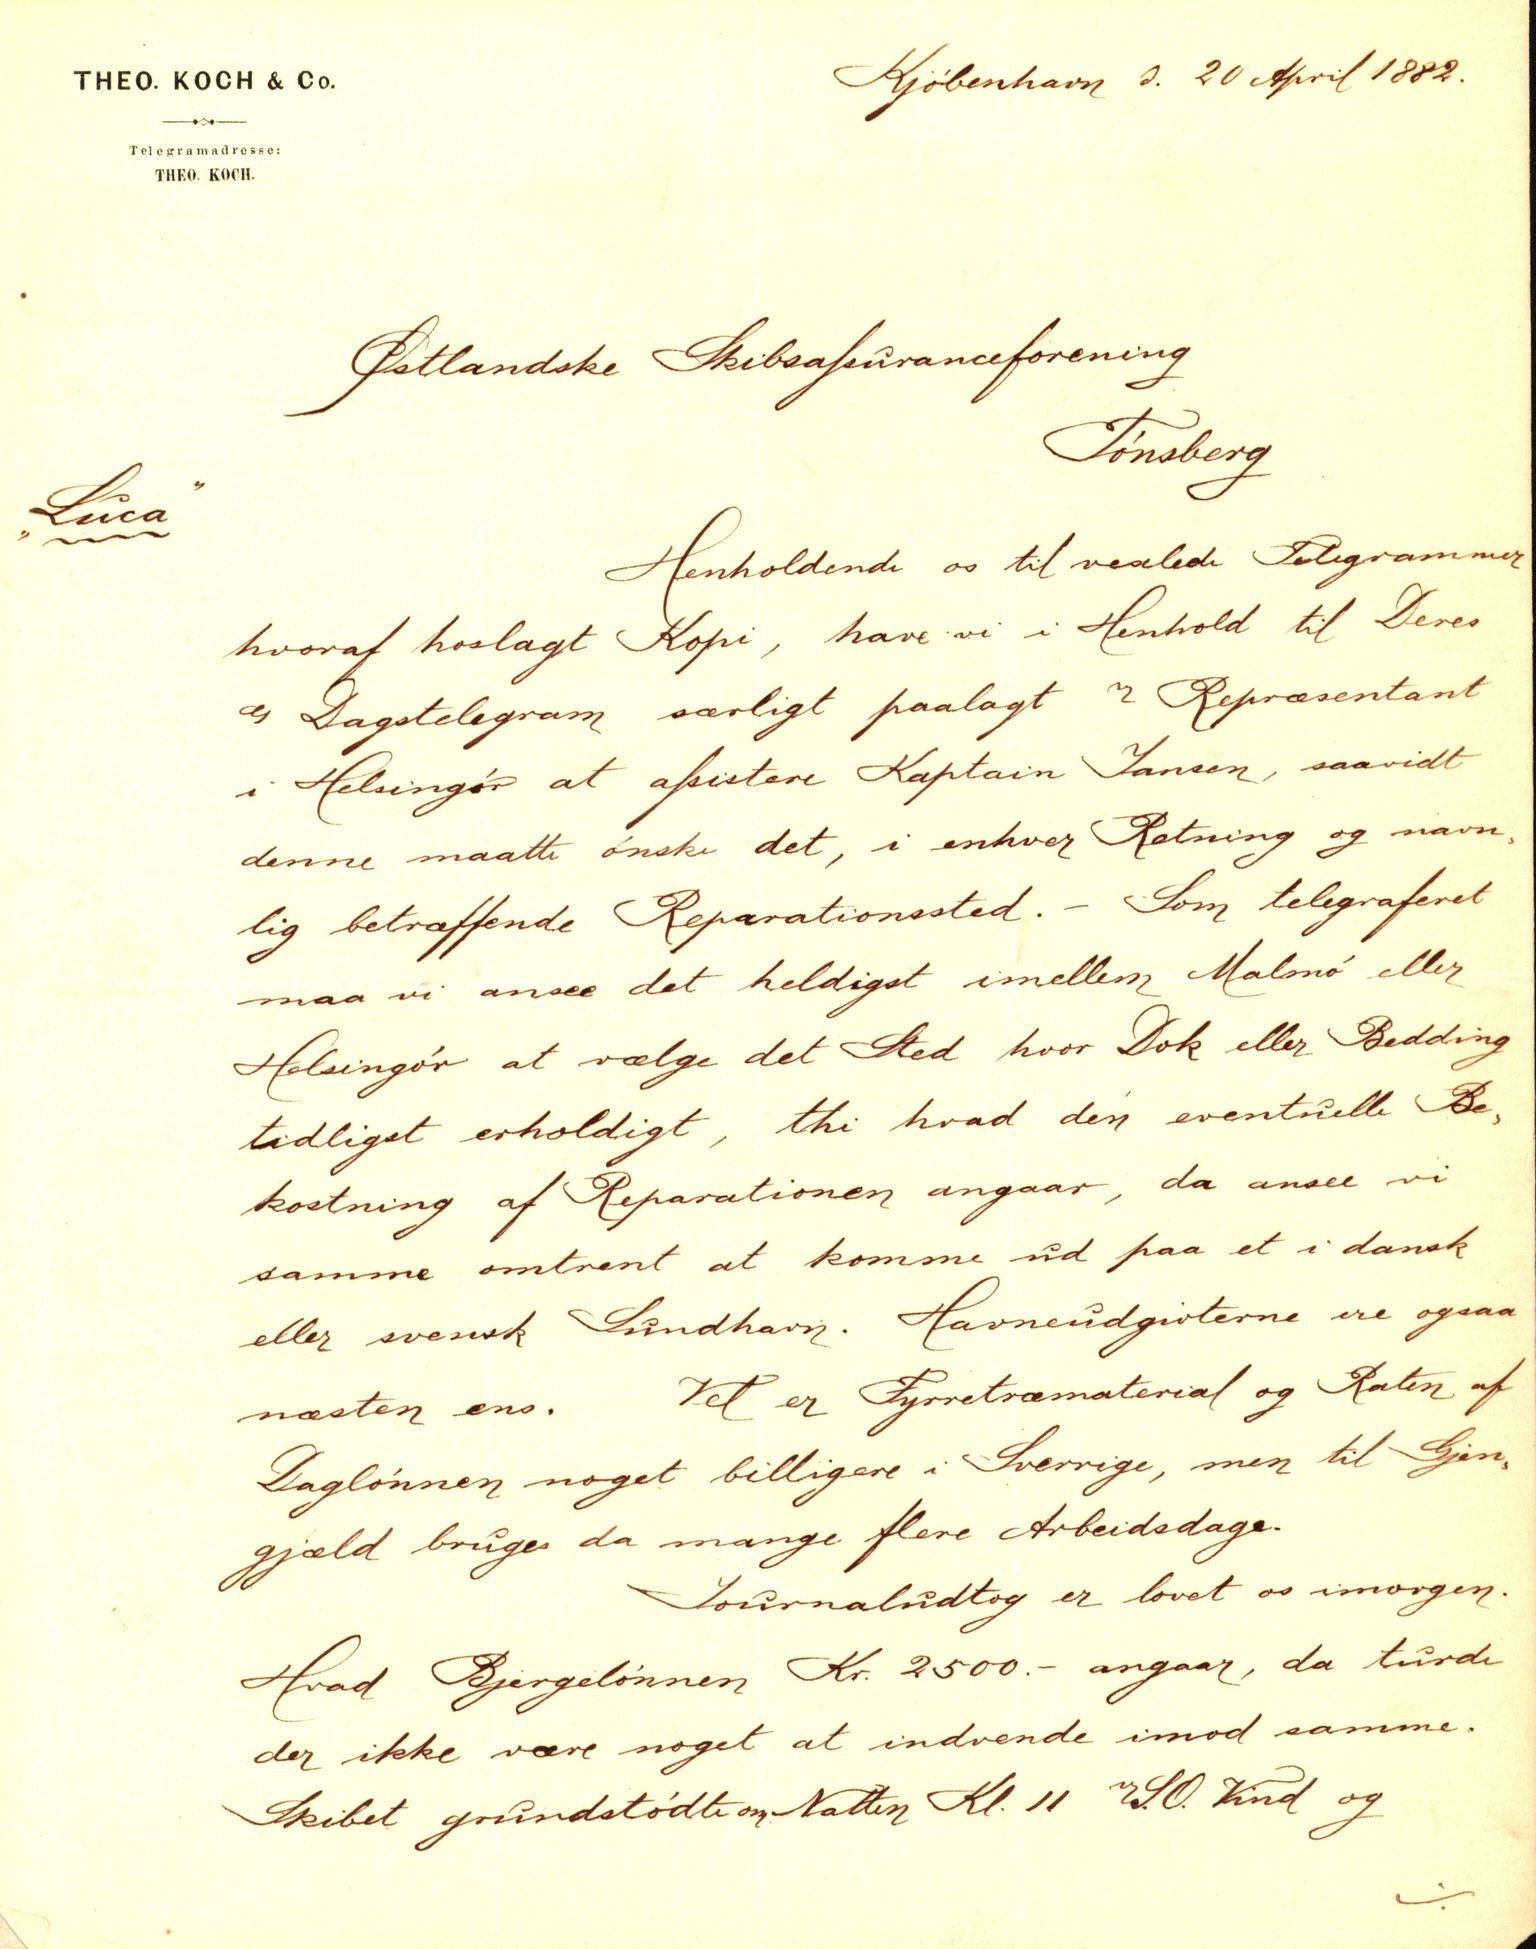 THEO. KOCH & Co.
Kjöbenhavn d. 20 April 1882.
Telegramadresse:
THEO. KOCH.
Østlandske Skibsassuranceforening
Tönsberg
"Luca"
Henholdende os til vexlede Telegrammer
hvoraf hoslagt Kopi, have vi i Henhold til Deres
Dagstelegram særligt paalagt Repræsentant
i Helsingör at assistere Kaptain Jansen, saavidt
denne maatte önske det, i enhver Retning og navn-
lig betræffende Reparationssted. - Som telegraferet
maa vi ansee det heldigst imellem Malmö eller
Helsingör at vælge det Sted hvor Dok eller Bedding
tidligst erholdigt, thi hvad den eventuelle Be-
kostning af Reparationen angaar, da ansee vi
samme omtrent at komme ud paa et i dansk
eller svensk Sundhavn. Havneudgivterne ere ogsaa
næsten ens. Vel er Fyrretræmaterial og Raten af
Daglönnen noget billigere i Sverrige, men til Gjen-
gjæld bruges da mange flere Arbeidsdage.
Journaludtog er lovet os imorgen.
Hvad Bjergelönnen Kr. 2500.- angaar, da turde
der ikke være noget at indvende imod samme.
Skibet grundstödte om Natten Kl. 11 S.O. Vind og
./.